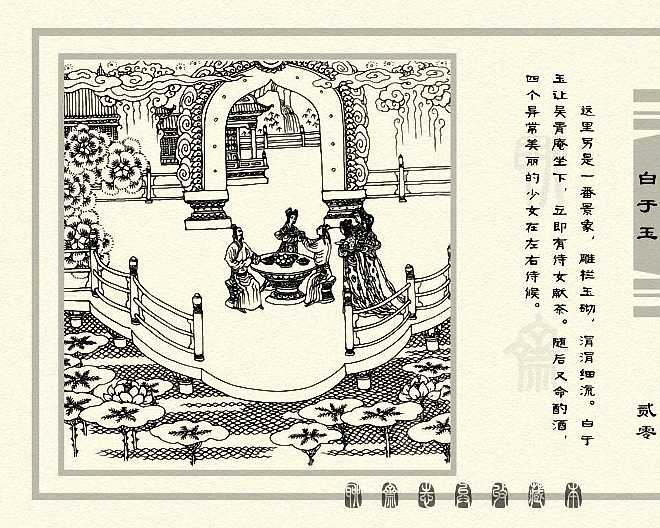 这里另是一番景象，雕栏玉砌，涓涓细流。白于
玉让吴青庵坐下，立即有侍女献茶。随后又命酌酒，
四个异常美丽的少女在左右侍候。
白于玉
贰零
聊斋志异收藏本